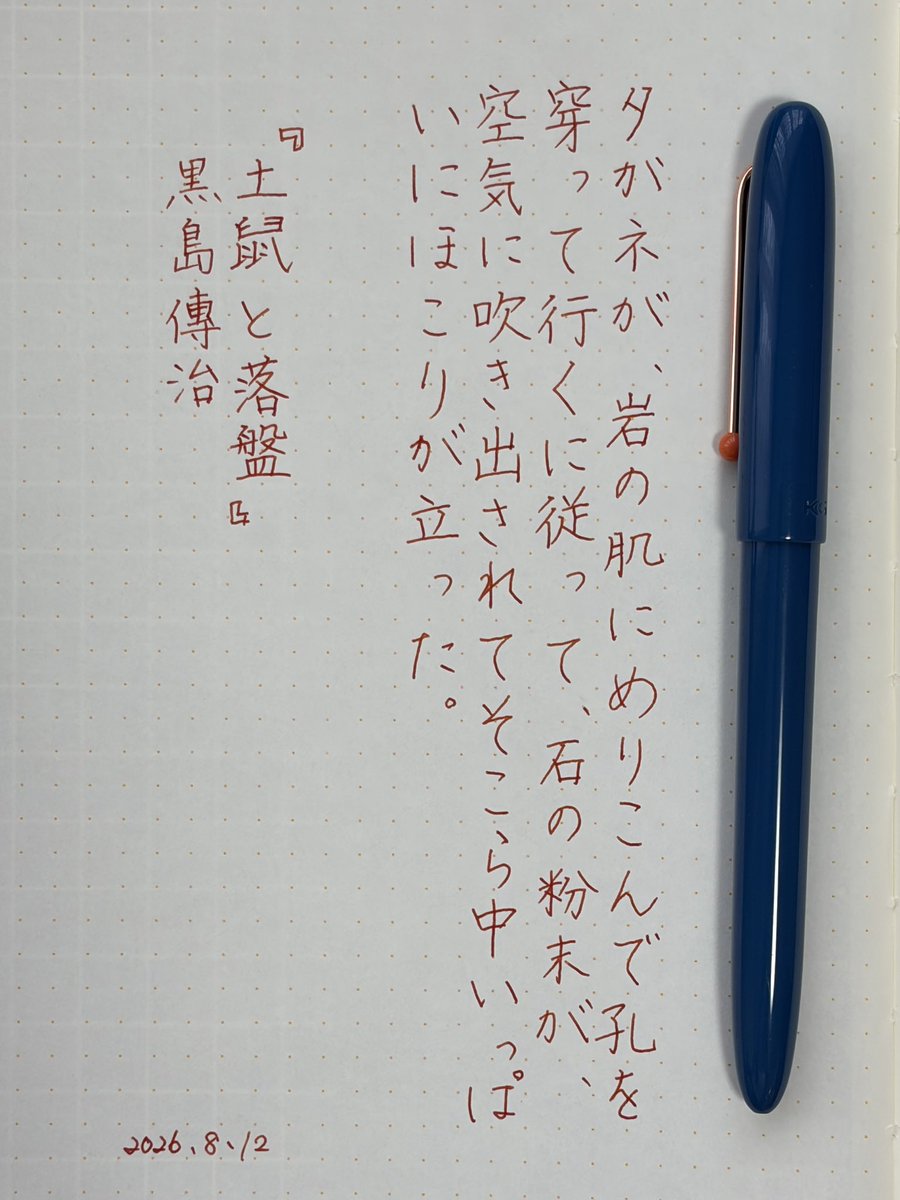 タガネが、岩の肌にめりこんで孔を
穿って行くに従って、石の粉末が、
空気に吹き出されてそこら中いっぱ
いにほこりが立った。
『土鼠と落盤』
黒島傳治
2026.8.12